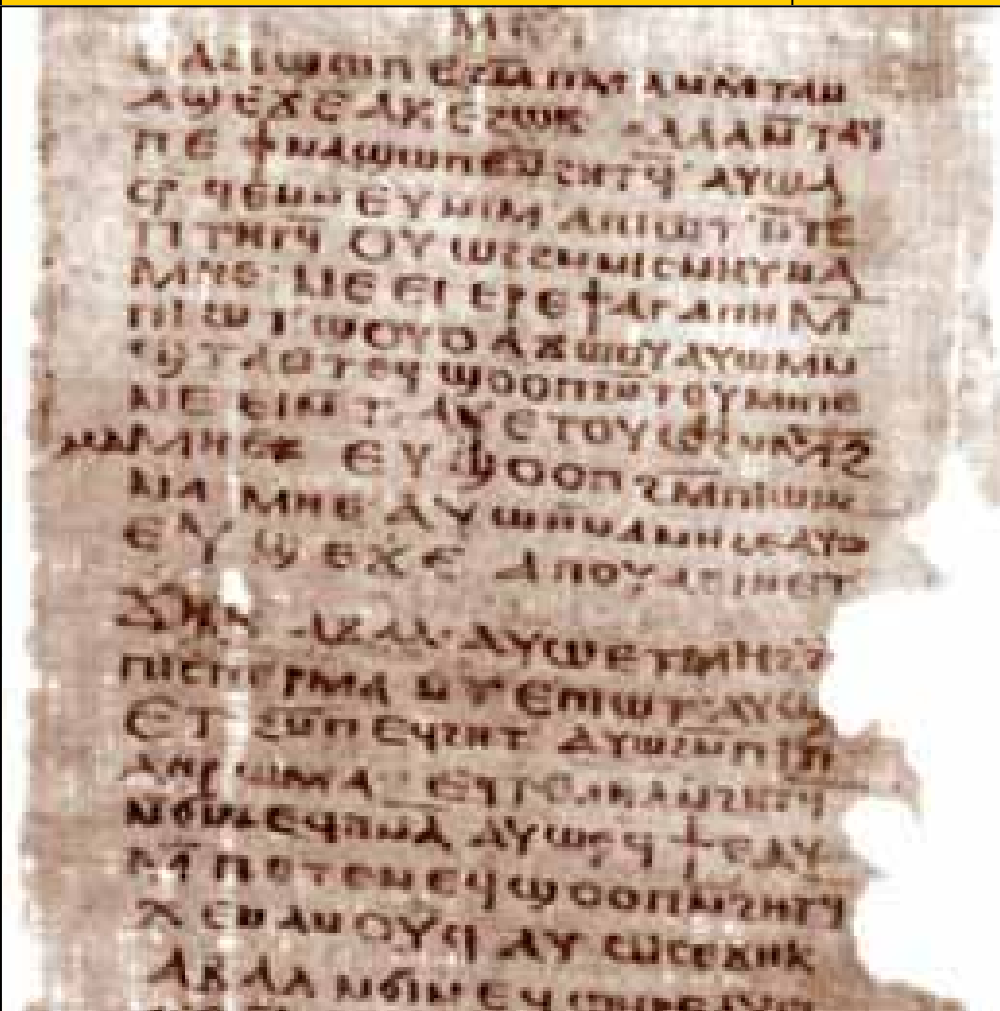 ⲙⲅ
ⲁϩⲓϣⲱⲡⲉ ϩⲙ̄ ⲡⲙⲁ ⲛ̄ⲙ̄ⲧⲁⲛ
ⲁϣⲉϫⲉ ⲁⲕⲉϩⲱⲃ ⲁⲗⲗⲁ ⲛ̄ⲧⲁϥ
ⲡⲉϯⲛⲁϣⲱⲡⲉ ⲛ̄ϩⲏⲧϥ̄ ⲁⲩⲱ ⲁ
ⲥⲣ̄ϥⲉ ⲛ̄ⲛⲉⲩ ⲛⲓⲙ ⲁⲡⲓⲱⲧ ⲛ̄ⲧⲉ
ⲡⲧⲏⲣϥ̄ ⲟⲩⲱϩ ⲛ̄ⲛⲓⲥⲛⲏⲩ ⲛⲁ
ⲙⲏⲉ ⲛⲉⲉⲓ ⲉⲣⲉϯⲁⲅⲁⲡⲏ ⲙ̄
ⲡⲓⲱⲧ ϣⲟⲩⲟ ⲁϫⲱⲟⲩ ⲁⲩⲱ ⲙⲛ̄
ϣⲧⲁ ⲛ̄ⲧⲉϥ ϣⲟⲟⲡ ϩⲛ̄ ⲧⲟⲩⲙⲏⲧⲉ
ⲛⲉⲉⲓ ⲛ̄ⲧⲁⲩ ⲉⲧⲟⲩⲱⲛϩ̄
ⲙⲁⲙⲏⲉ ⲉⲩϣⲟⲟⲡ ϩⲙ̄ ⲡⲓⲱⲛϩ̄
ⲛⲁⲙⲏⲉ ⲁⲩⲱ ⲛ̄ϣⲁⲁⲛⲏϩⲉ ⲁⲩⲱ
ⲉⲩϣⲉϫⲉ ⲁⲡⲟⲩⲁⲉⲓⲛ ⲉⲧ
ϫⲏⲕ ⲁⲃⲁⲗ ⲁⲩⲱ ⲉⲧⲙⲏϩ ϩⲛ̄
ⲡⲓⲥⲡⲉⲣⲙⲁ ⲛ̄ⲧⲉ ⲡⲓⲱⲧ ⲁⲩⲱ
ⲉⲧϩⲛ̄ ⲡⲉϥϩⲏⲧ ⲁⲩⲱ ϩⲛ̄ ⲡⲓⲡ
ⲗⲏⲣⲱⲙⲁ ⲉϥⲧⲉⲗⲏⲗ ⲛ̄ϩⲏⲧϥ̄
ⲛ̄ϭⲓ ⲡⲉϥⲡ̄ⲛ̄ⲁ̄ ⲁⲩⲱ ⲉϥϯⲉⲁⲩ
ⲙ̄ⲡⲉⲧⲉⲛⲉϥϣⲟⲟⲡ ⲛ̄ϩⲏⲧϥ̄
ϫⲉ ⲛⲁⲛⲟⲩϥ ⲁⲩⲱ ⲥⲉϫⲏⲕ
ⲁⲃⲁⲗ ⲛ̄ϭⲓ ⲛⲉϥϣⲏⲣⲉ ⲁⲩⲱ